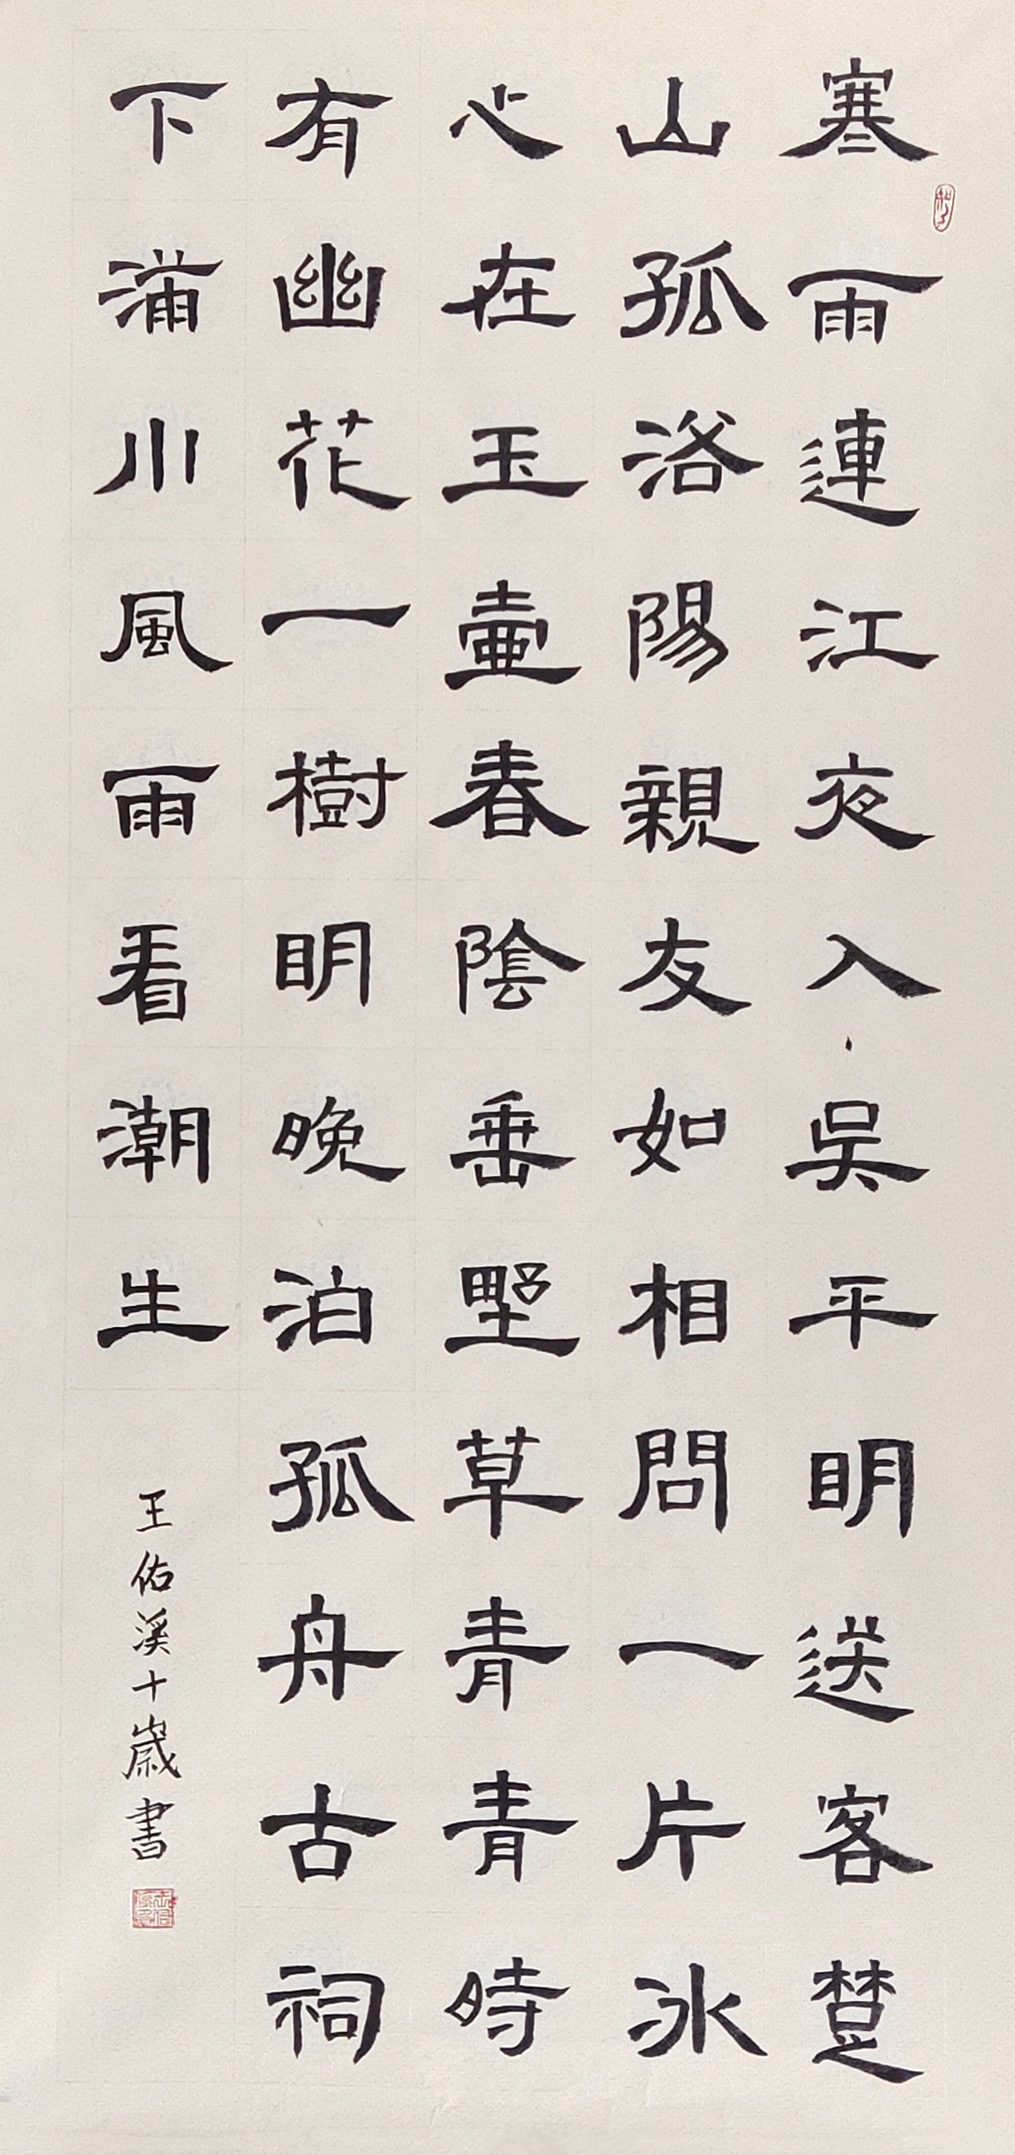 寒雨連江夜入吳平明送客楚
山孤洛陽親友如相問一片冰
心在玉壺春陰垂墅草青青時
有幽花一樹明晚泊孤舟古祠
下滿川風雨看潮生
王佑溪十歲書